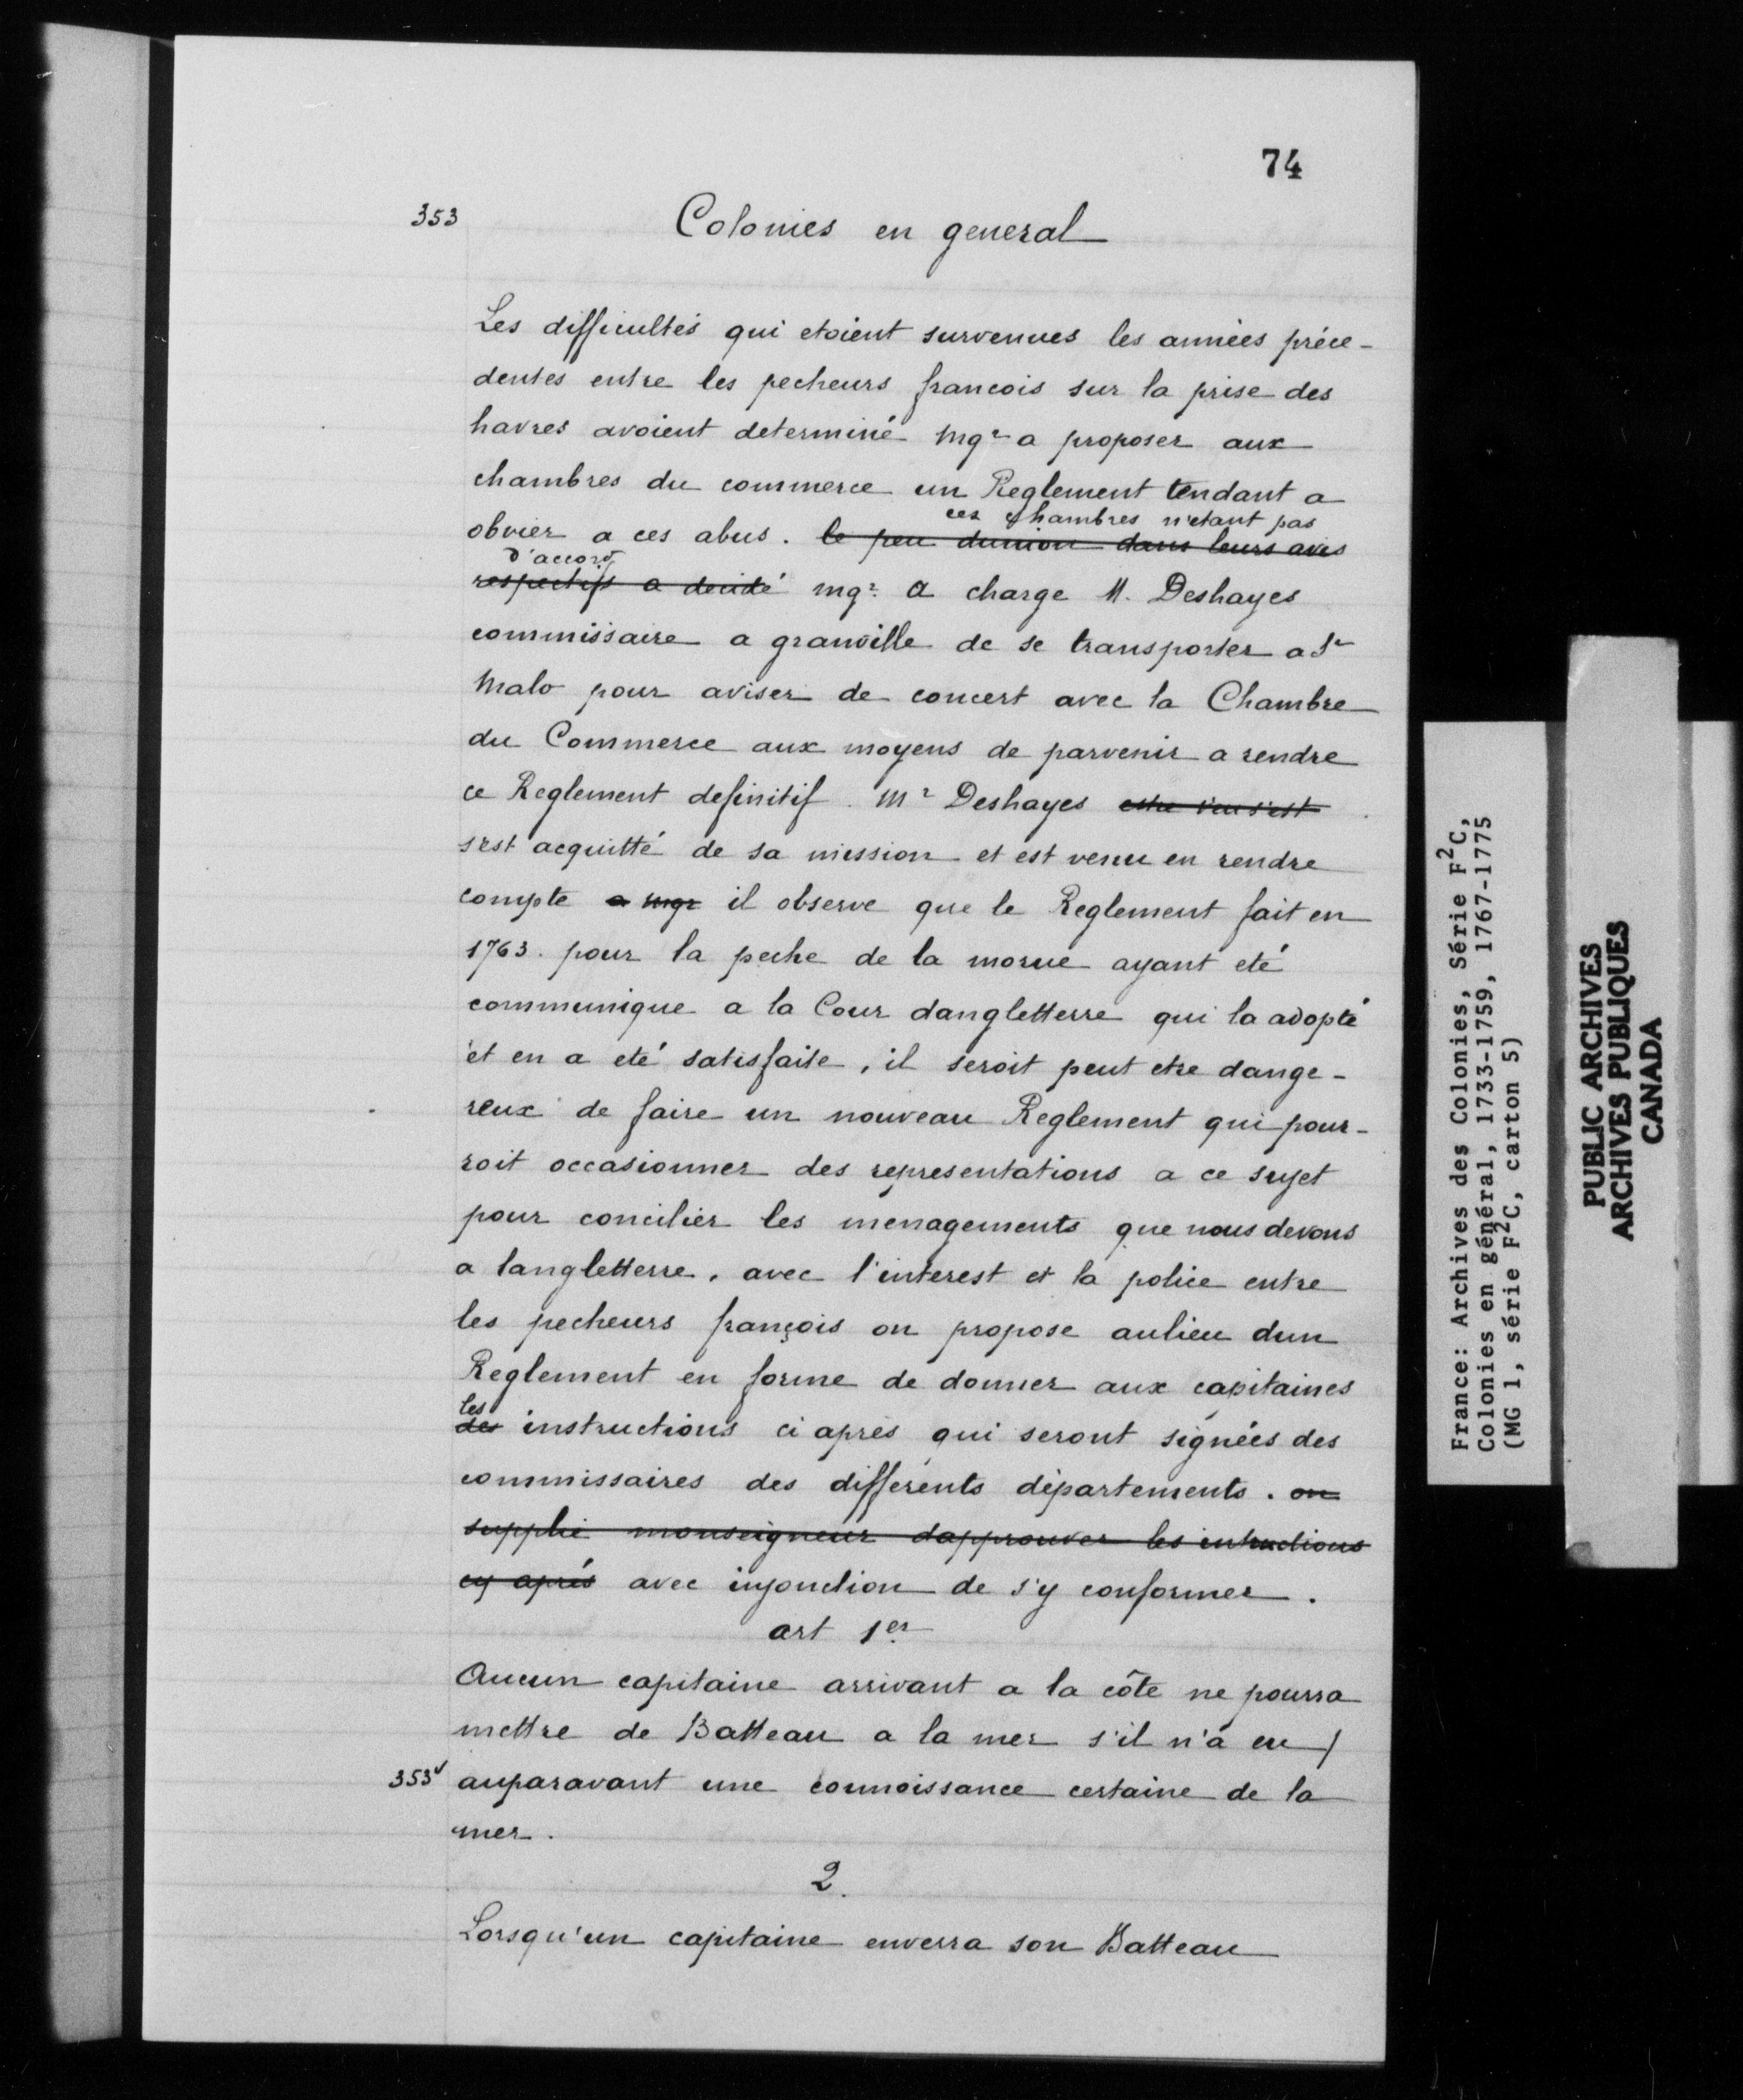 74
353
Colonies en general
Les difficultés qui etoient survenues les années préce-
dentes entre les pecheurs francois sur la prise des
havres avoient determiné Mgr a proposer aux
chambres du commerce un Reglement tendant a
ces chambres n'etant pas
obvier a ces abus. le peu dunion dans leurs avis
d'accord
respectifs a decidé mgr. a charge M. Deshayes
commissaire a granville de se transporter a St
Malo pour aviser de concert avec la Chambre
du Commerce aux moyens de parvenir a rendre
ce Reglement definitif. Mr Deshayes
s'est acquitté de sa mission et est venu en rendre
compte a mgr il observe que le Reglement fait en
1763. pour la peche de la morue ayant eté
communique a la Cour dangletterre qui la adopté
et en a eté satisfaite, il seroit peut etre dange-
reux de faire un nouveau Reglement qui pour-
roit occasionner des representations a ce sujet
pour concilier les menagements que nous devons
a langletterre. avec l'interest et la police entre
les pecheurs françois on propose aulieu dun
Reglement en forme de donner aux capitaines
les
des instructions ci après qui seront signées des
commissaires des différents départements. on
supplie monseigneur dapprouver les intructions
cy aprés avec injonction de s'y conformer.
art 1er
Aucun capitaine arrivant a la côte ne pourra
mettre de Batteau a la mer s'il n'a eu /
353v auparavant une connoissance certaine de la
mer.
2.
Lorsqu'un capitaine enverra son Batteau
France: Archives des Colonies, Série F2C,
Colonies en général, 1733-1759, 1767-1775
(MG 1, série F2C, carton 5)
PUBLIC ARCHIVES
ARCHIVES PUBLIQUES
CANADA